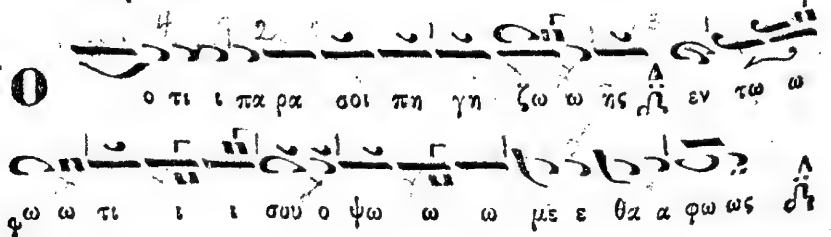 Ο ο τι ι πα ρα σοι πη γη ζω ω ης εν τω ω
φω ω τι ι ι σου ο ψω ω ω με ε θα α φω ως